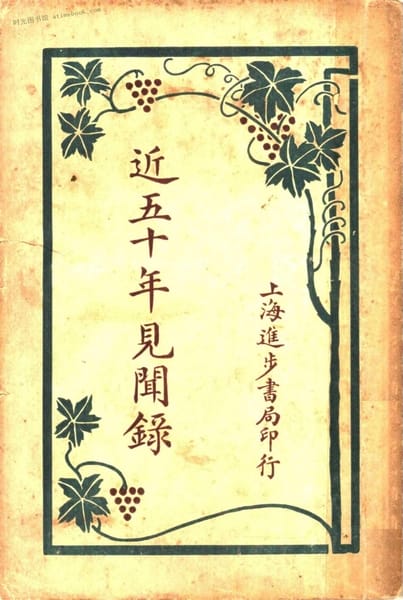 时光图书馆 atimebook.com
近五十年見聞錄
上海進步書局印行